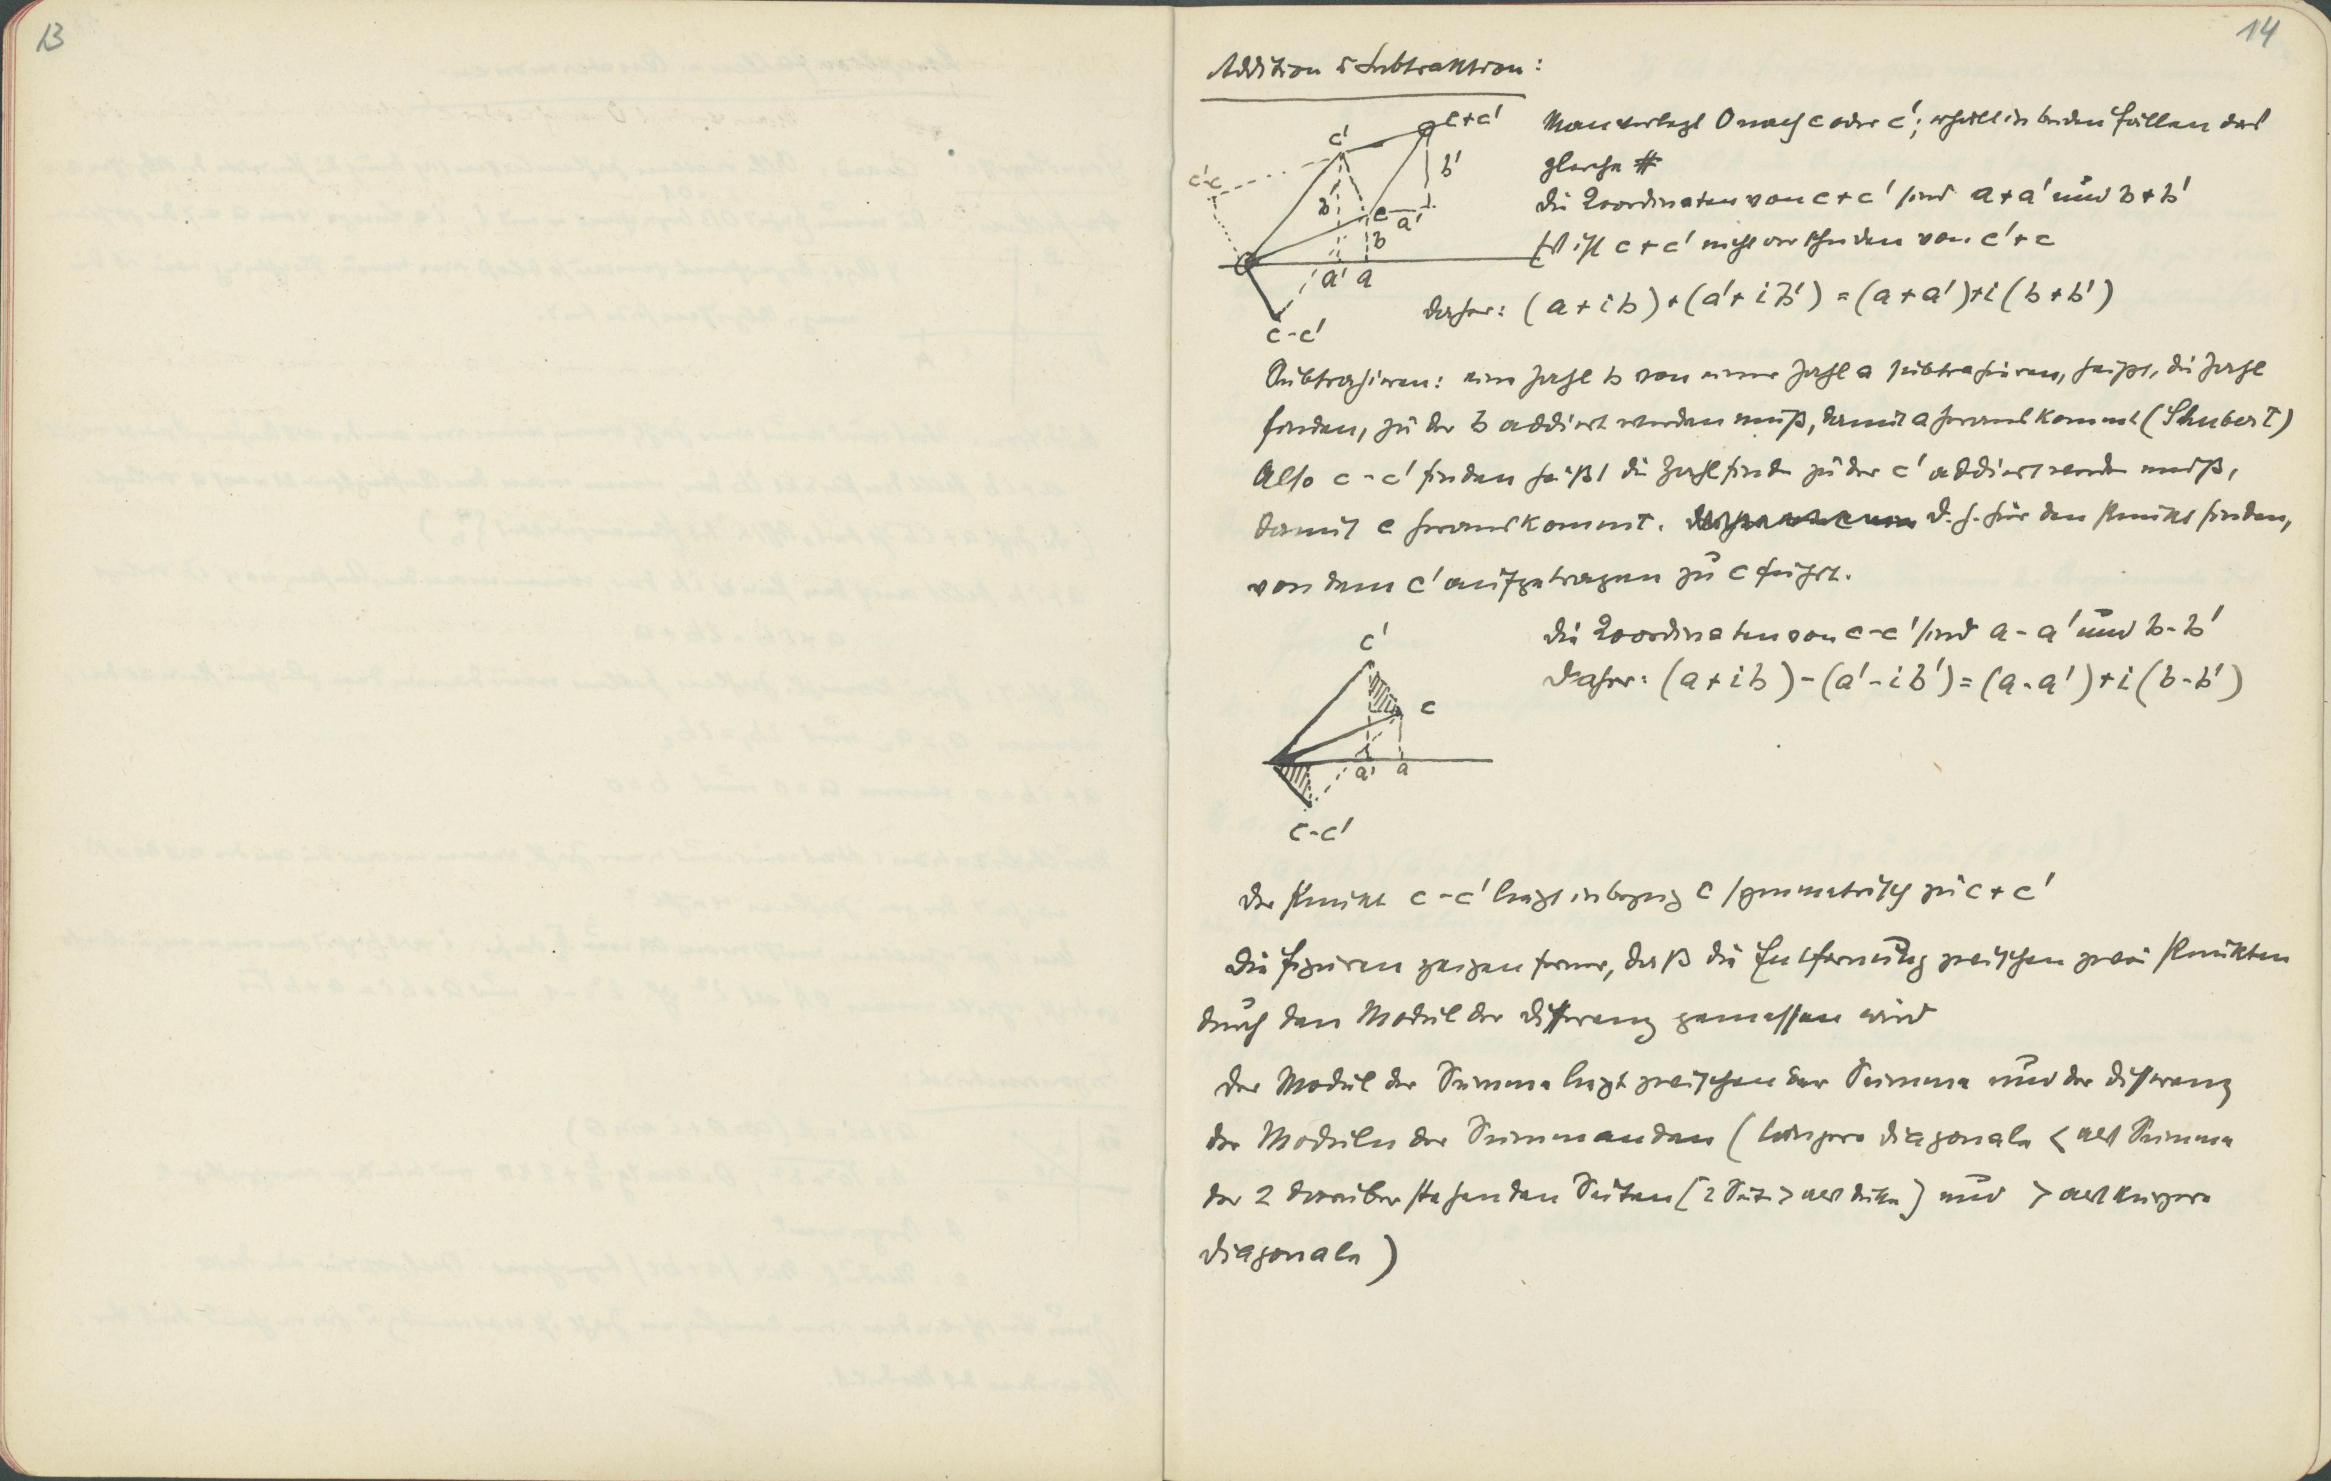 13
14
Addition u Subtraktion:
c+c'
c'
c'-c
b'
b'
c
a'
b
a' a
c-c'
Man verlegt O nach c oder c'; erhält in beiden Fällen das
gleiche #
Die Koordinaten von c+c' sind a+a' und b+b'
Es ist c+c' nicht verschieden von c'+c
Daher: (a+ib)+(a'+ib') = (a+a')+i(b+b')
Subtrahieren: eine Zahl b von einer Zahl a subtrahieren, heißt, die Zahl
finden, zu der b addiert werden muß, damit a herauskommt (Schubert)
Also c-c' finden heißt die Zahl finden zu der c' addiert werden muß,
damit c herauskommt. D.h. hier den Punkt finden,
von dem c' aufgetragen zu c führt.
c'
c
a' a
c-c'
Die Koordinaten von c-c' sind a-a' und b-b'
Daher: (a+ib)-(a'-ib')=(a-a')+i(b-b')
Der Punkt c-c' liegt in bezug c symmetrisch zu c+c'
Die Figuren zeigen ferner, daß die Entfernung zwischen zwei Punkten
durch den Modul der Differenz gemessen wird
Der Modul der Summe liegt zwischen der Summe und der Differenz
der Moduln der Summanden (längere Diagonale < als Summe
der 2 darüber stehenden Seiten [2 Seiten > als dritte] und > als kürzere
Diagonale)